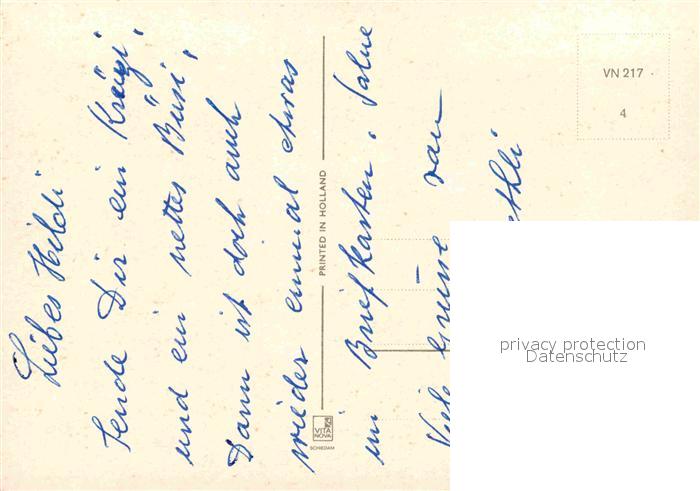 Liebes Hildi
Sende Dir ein
und ein nettes Büsi,
Dann ist doch auch
wieder einmal etwas
im Briefkasten. Salue
Viele Grüsse von
ethli
PRINTED IN HOLLAND
VITA NOVA
SCHIEDAM
VN 217
4
privacy protection
Datenschutz